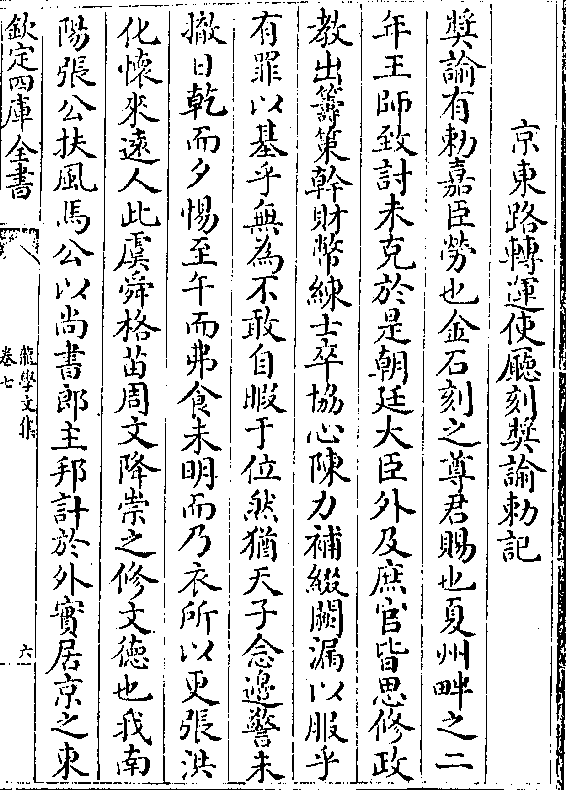 京東路轉運使廳刻奬諭勅記
奬諭有勅嘉臣勞也金石刻之尊君賜也夏州畔之二
年王師致討未克於是朝廷大臣外及庶官皆思修政
教出籌策幹財幣練士卒協心陳力補綴闕漏以服乎
有罪以基乎無為不敢自暇于位然猶天子念邊警未
撤日乾而夕惕至午而弗食未明而乃衣所以更張洪
化懷來遠人此虞舜格苗周文降崇之修文徳也我南
陽張公扶風馬公以尚書郎主邦計於外實居京之東
欽定四庫全書
龍學文集
卷七
六